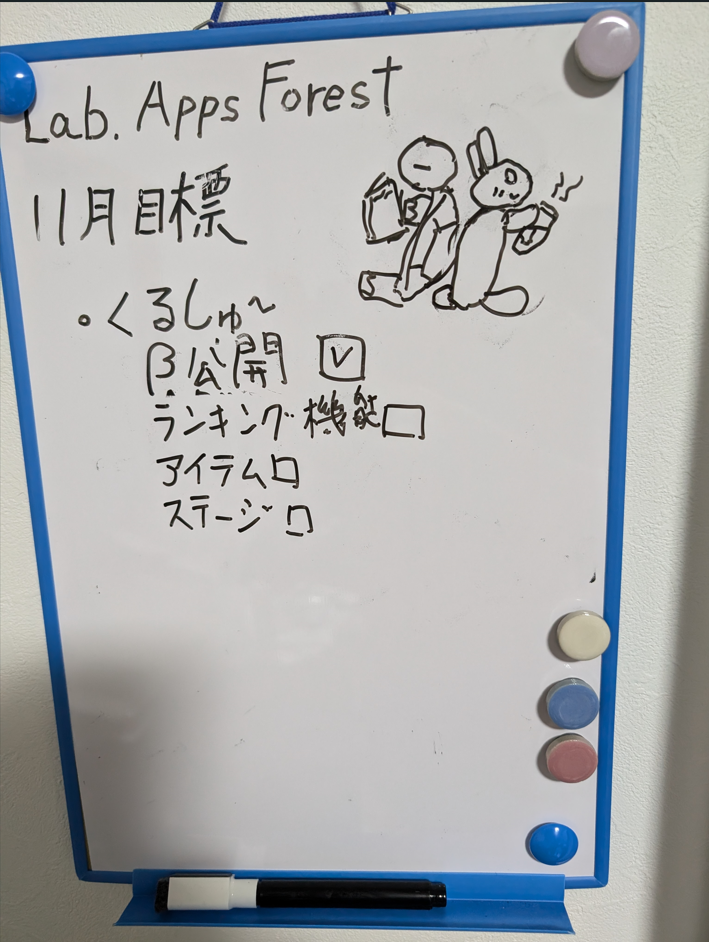 Lab. Apps Forest
11月目標
・くるしゅ~
β公開 ☑
ランキング機能 □
アイテム □
ステージ □